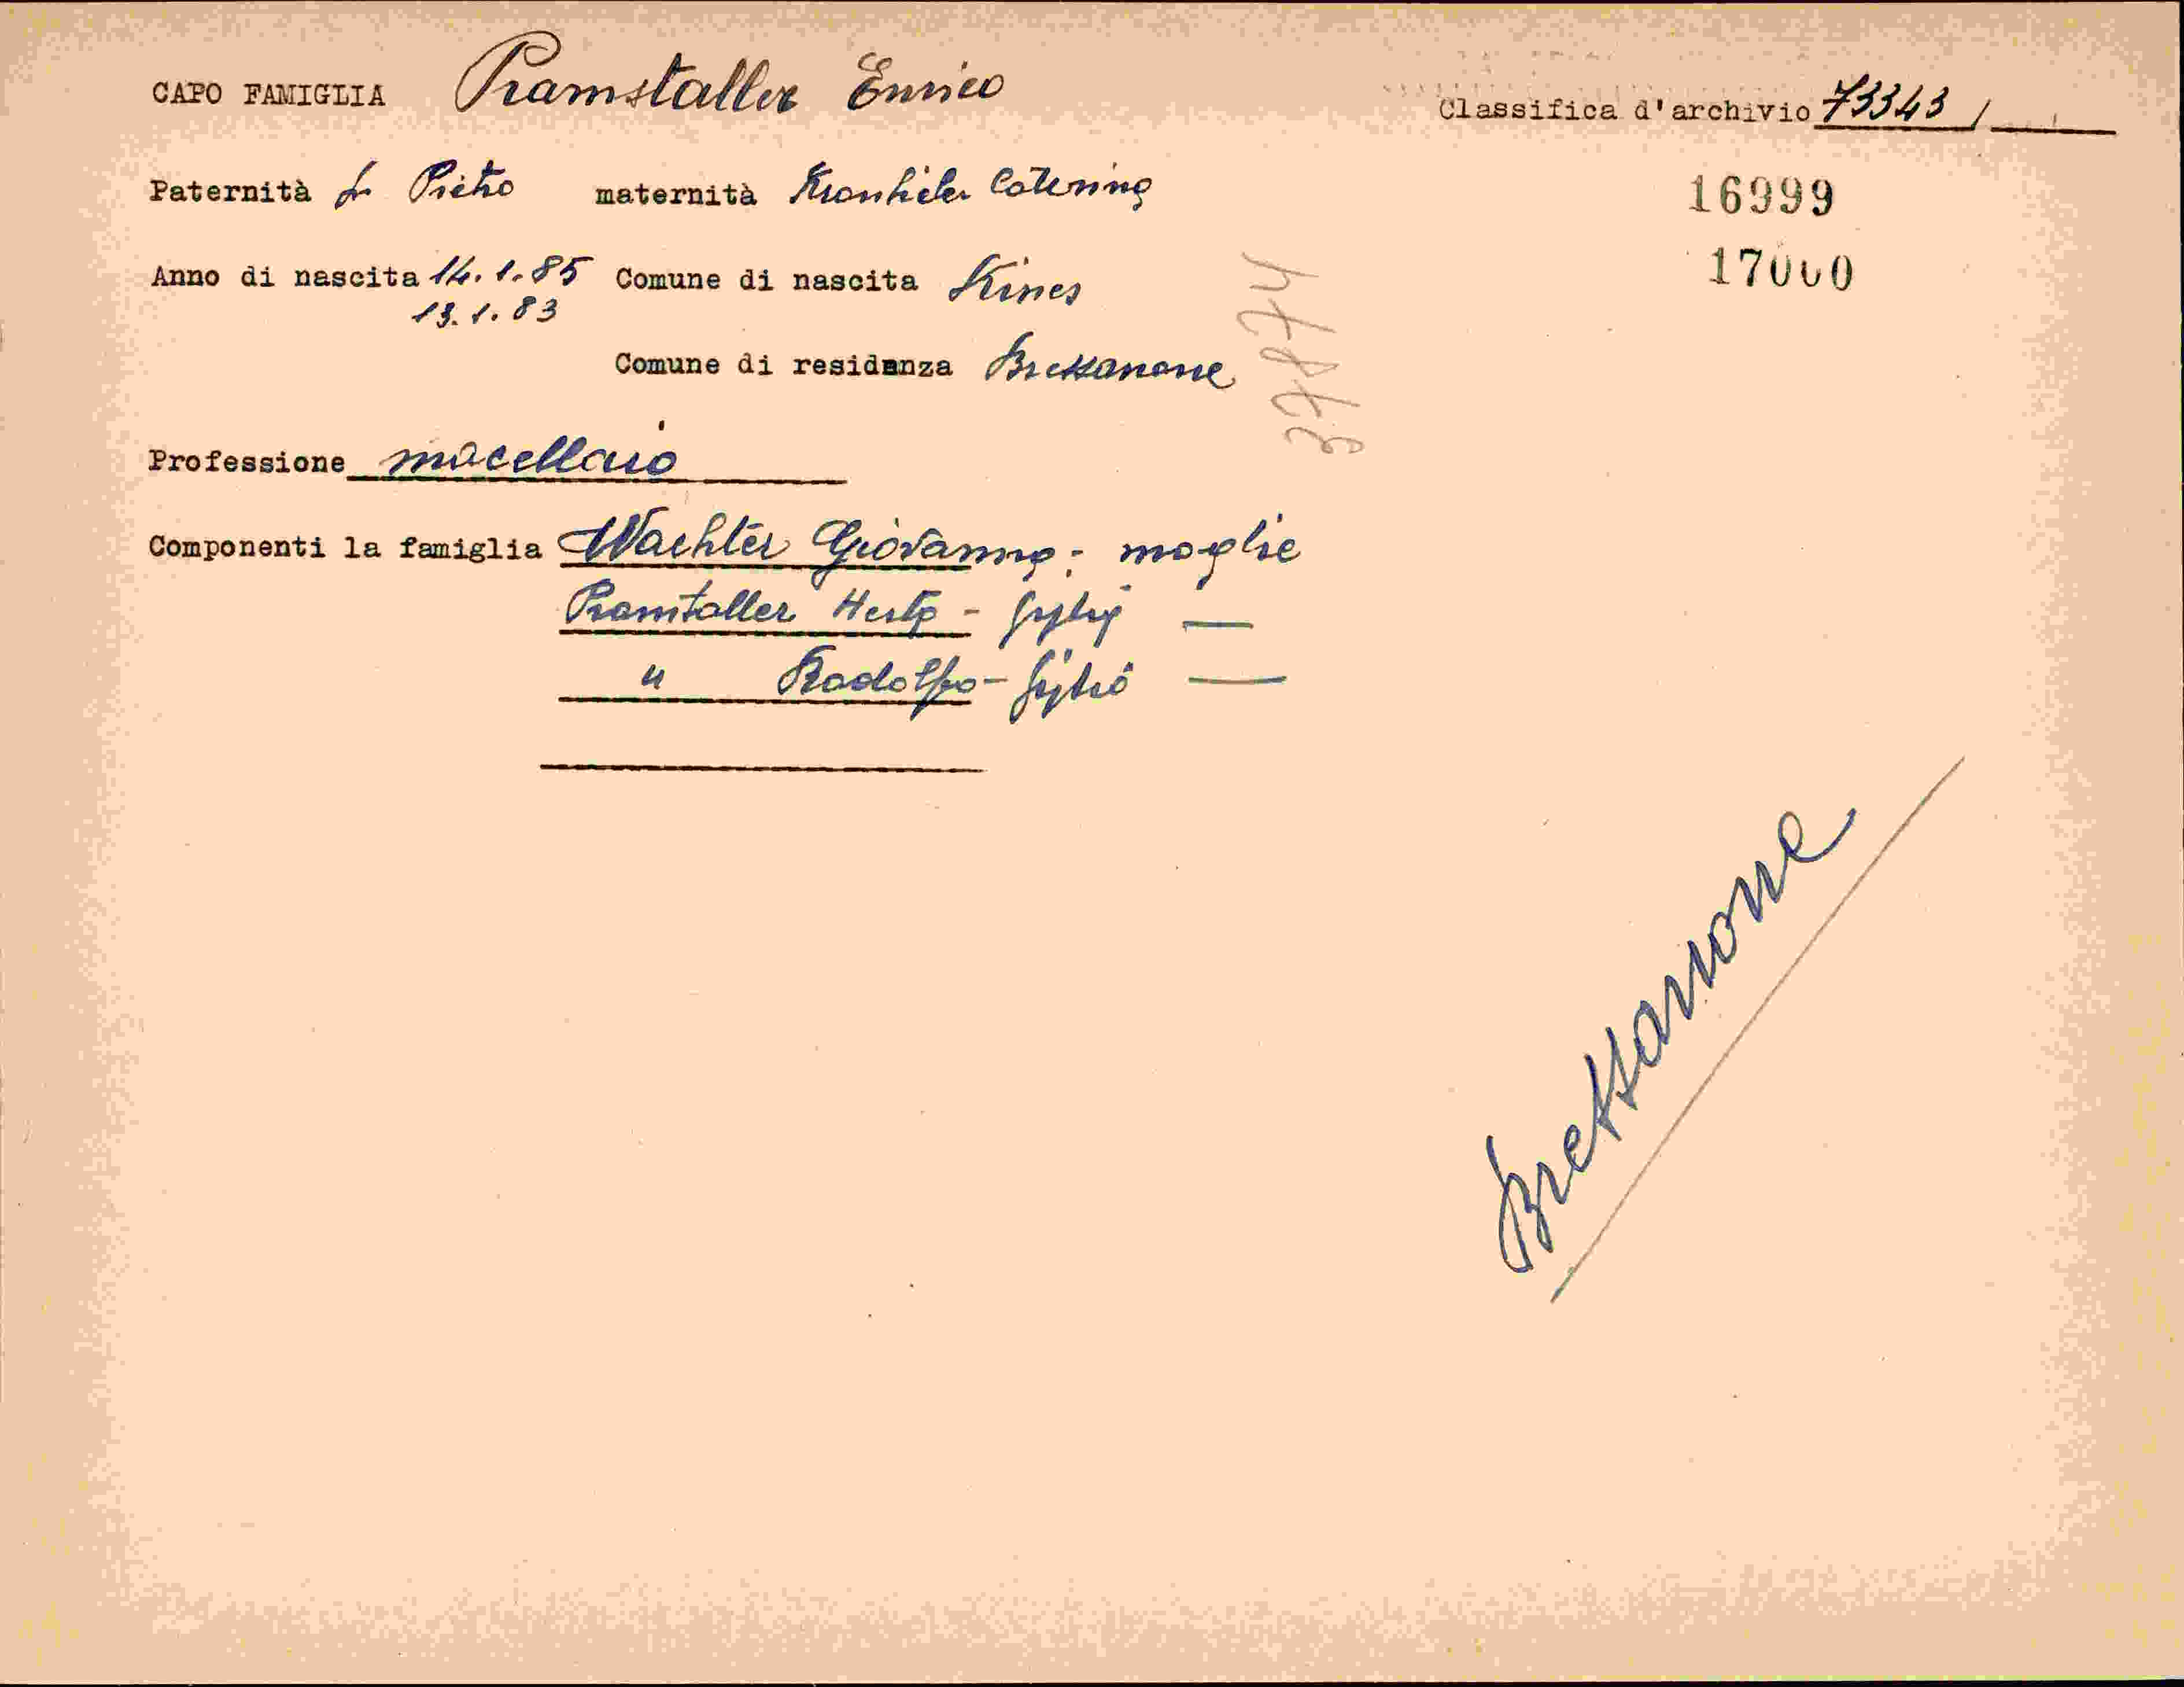 CAPO FAMIGLIA Pramstaller Enrico
Classifica d'archivio 73343 /
Paternità fu Pietro maternità Kronbiler Caterina
16999
Anno di nascita 14.1.85 Comune di nascita Kines
17000
13.1.83
Comune di residenza Bressanone
Professione macellaio
Componenti la famiglia Wachter Giovanna - moglie
Pramstaller Herta - figlia —
" Rodolfo - figlio —
Bressanone